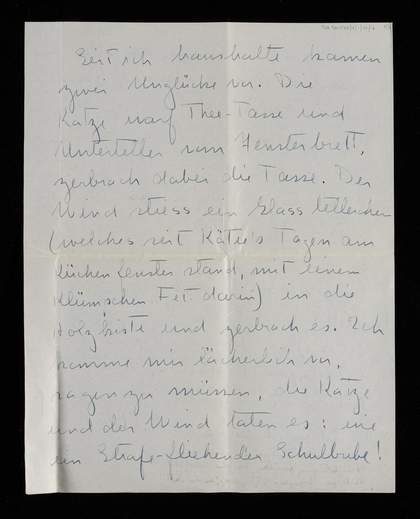 Seit ich haushalte kamen
zwei Unglücke vor. Die
Katze warf Thee-Tasse und
Unterteller vom Fensterbrett,
zerbrach dabei die Tasse. Der
Wind stiess ein Glasstellerchen
(welches seit Käthe's Tagen am
Küchenfenster stand, mit einem
Klümpchen Fet. darin) in die
Holzkiste und zerbrach es. Ich
komme mir lächerlich vor,
sagen zu müssen, die Katze
und der Wind taten es: wie
ein Strafe-fliehender Schulbube!